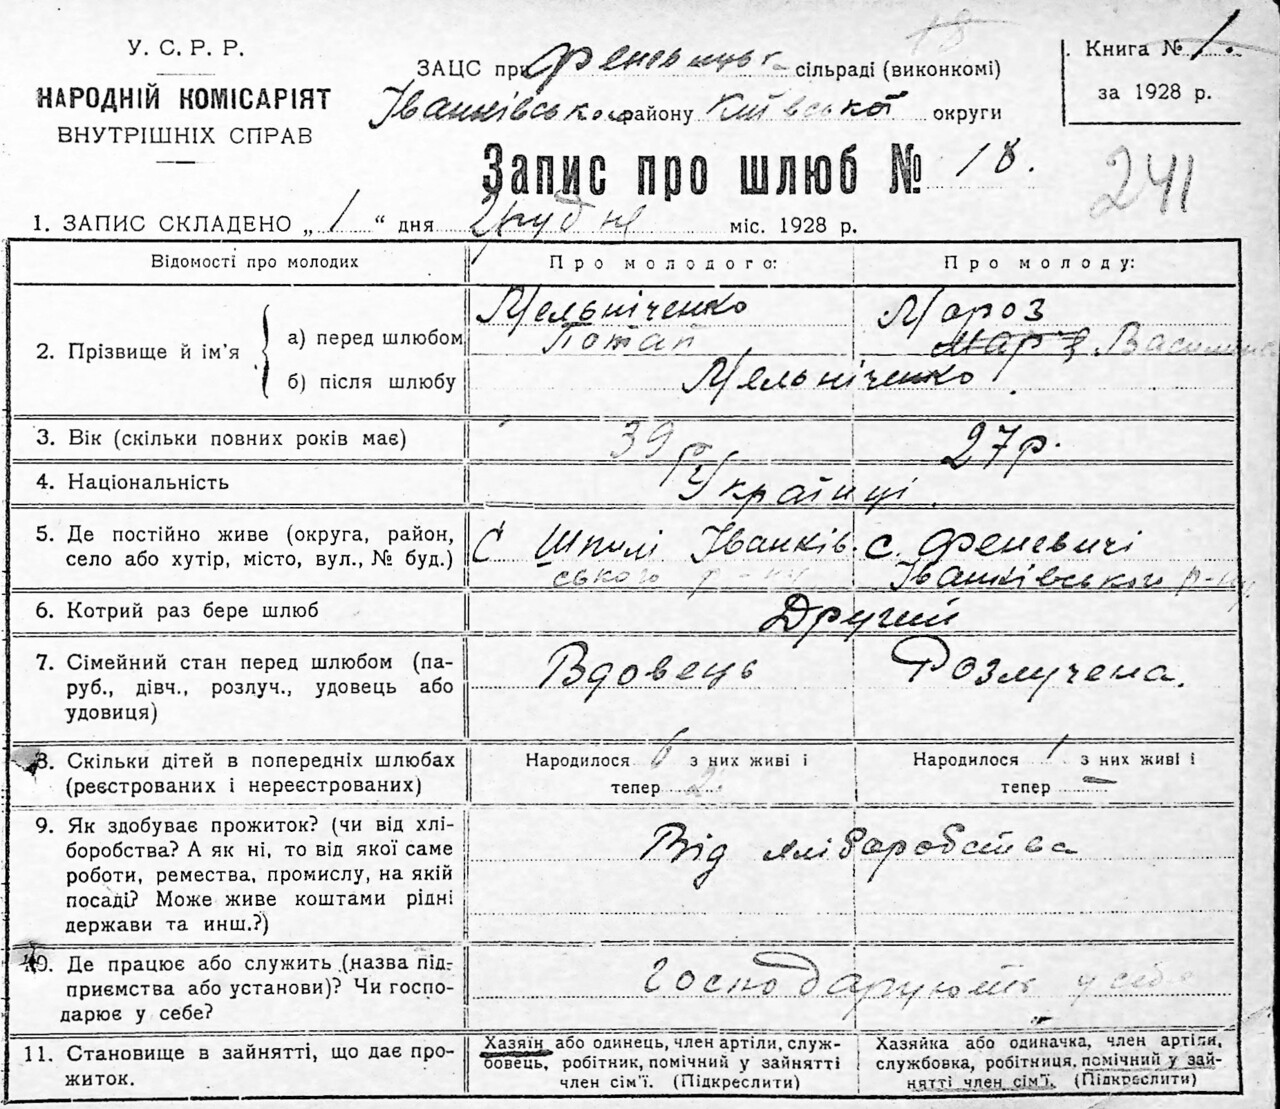 У. С. Р. Р.
НАРОДНІЙ КОМІСАРІЯТ
ВНУТРІШНІХ СПРАВ
18
ЗАЦС при сільраді (виконкомі)
Іванківського району Київської округи
Книга № 1.
за 1928 р.
Запис про шлюб № 18.
241
1. ЗАПИС СКЛАДЕНО „ 1 “ дня Грудня міс. 1928 р.
Відомості про молодих
Про молодого:
Про молоду:
2. Прізвище й ім'я
а) перед шлюбом
б) після шлюбу
Мельніченко
Потап
Мороз
Василина
Мельніченко
3. Вік (скільки повних років має)
39 р.
27 р.
4. Національність
Українці
5. Де постійно живе (округа, район,
село або хутір, місто, вул., № буд.)
С Шпилі Іванків
ського р-ну
с. Феневичі
Іванківського р-ну
6. Котрий раз бере шлюб
Другий
7. Сімейний стан перед шлюбом (па-
руб., дівч., розлуч., удовець або
удовиця)
Вдовець
Розлучена.
8. Скільки дітей в попередніх шлюбах
(реєстрованих і нереєстрованих)
Народилося 6 з них живі і
тепер 2
Народилося 1 з них живі і
тепер –
9. Як здобуває прожиток? (чи від хлі-
боробства? А як ні, то від якої саме
роботи, ремества, промислу, на якій
посаді? Може живе коштами рідні
держави та инш.?)
Від хліборобства
10. Де працює або служить (назва під-
приємства або установи)? Чи госпо-
дарює у себе?
Господарують у себе
11. Становище в зайнятті, що дає про-
житок.
Хазяїн або одинець, член артіли, служ-
бовець, робітник, помічний у зайнятті
член сім'ї. (Підкреслити)
Хазяйка або одиначка, член артіли,
службовка, робітниця, помічний у зай-
нятті член сім'ї. (Підкреслити)